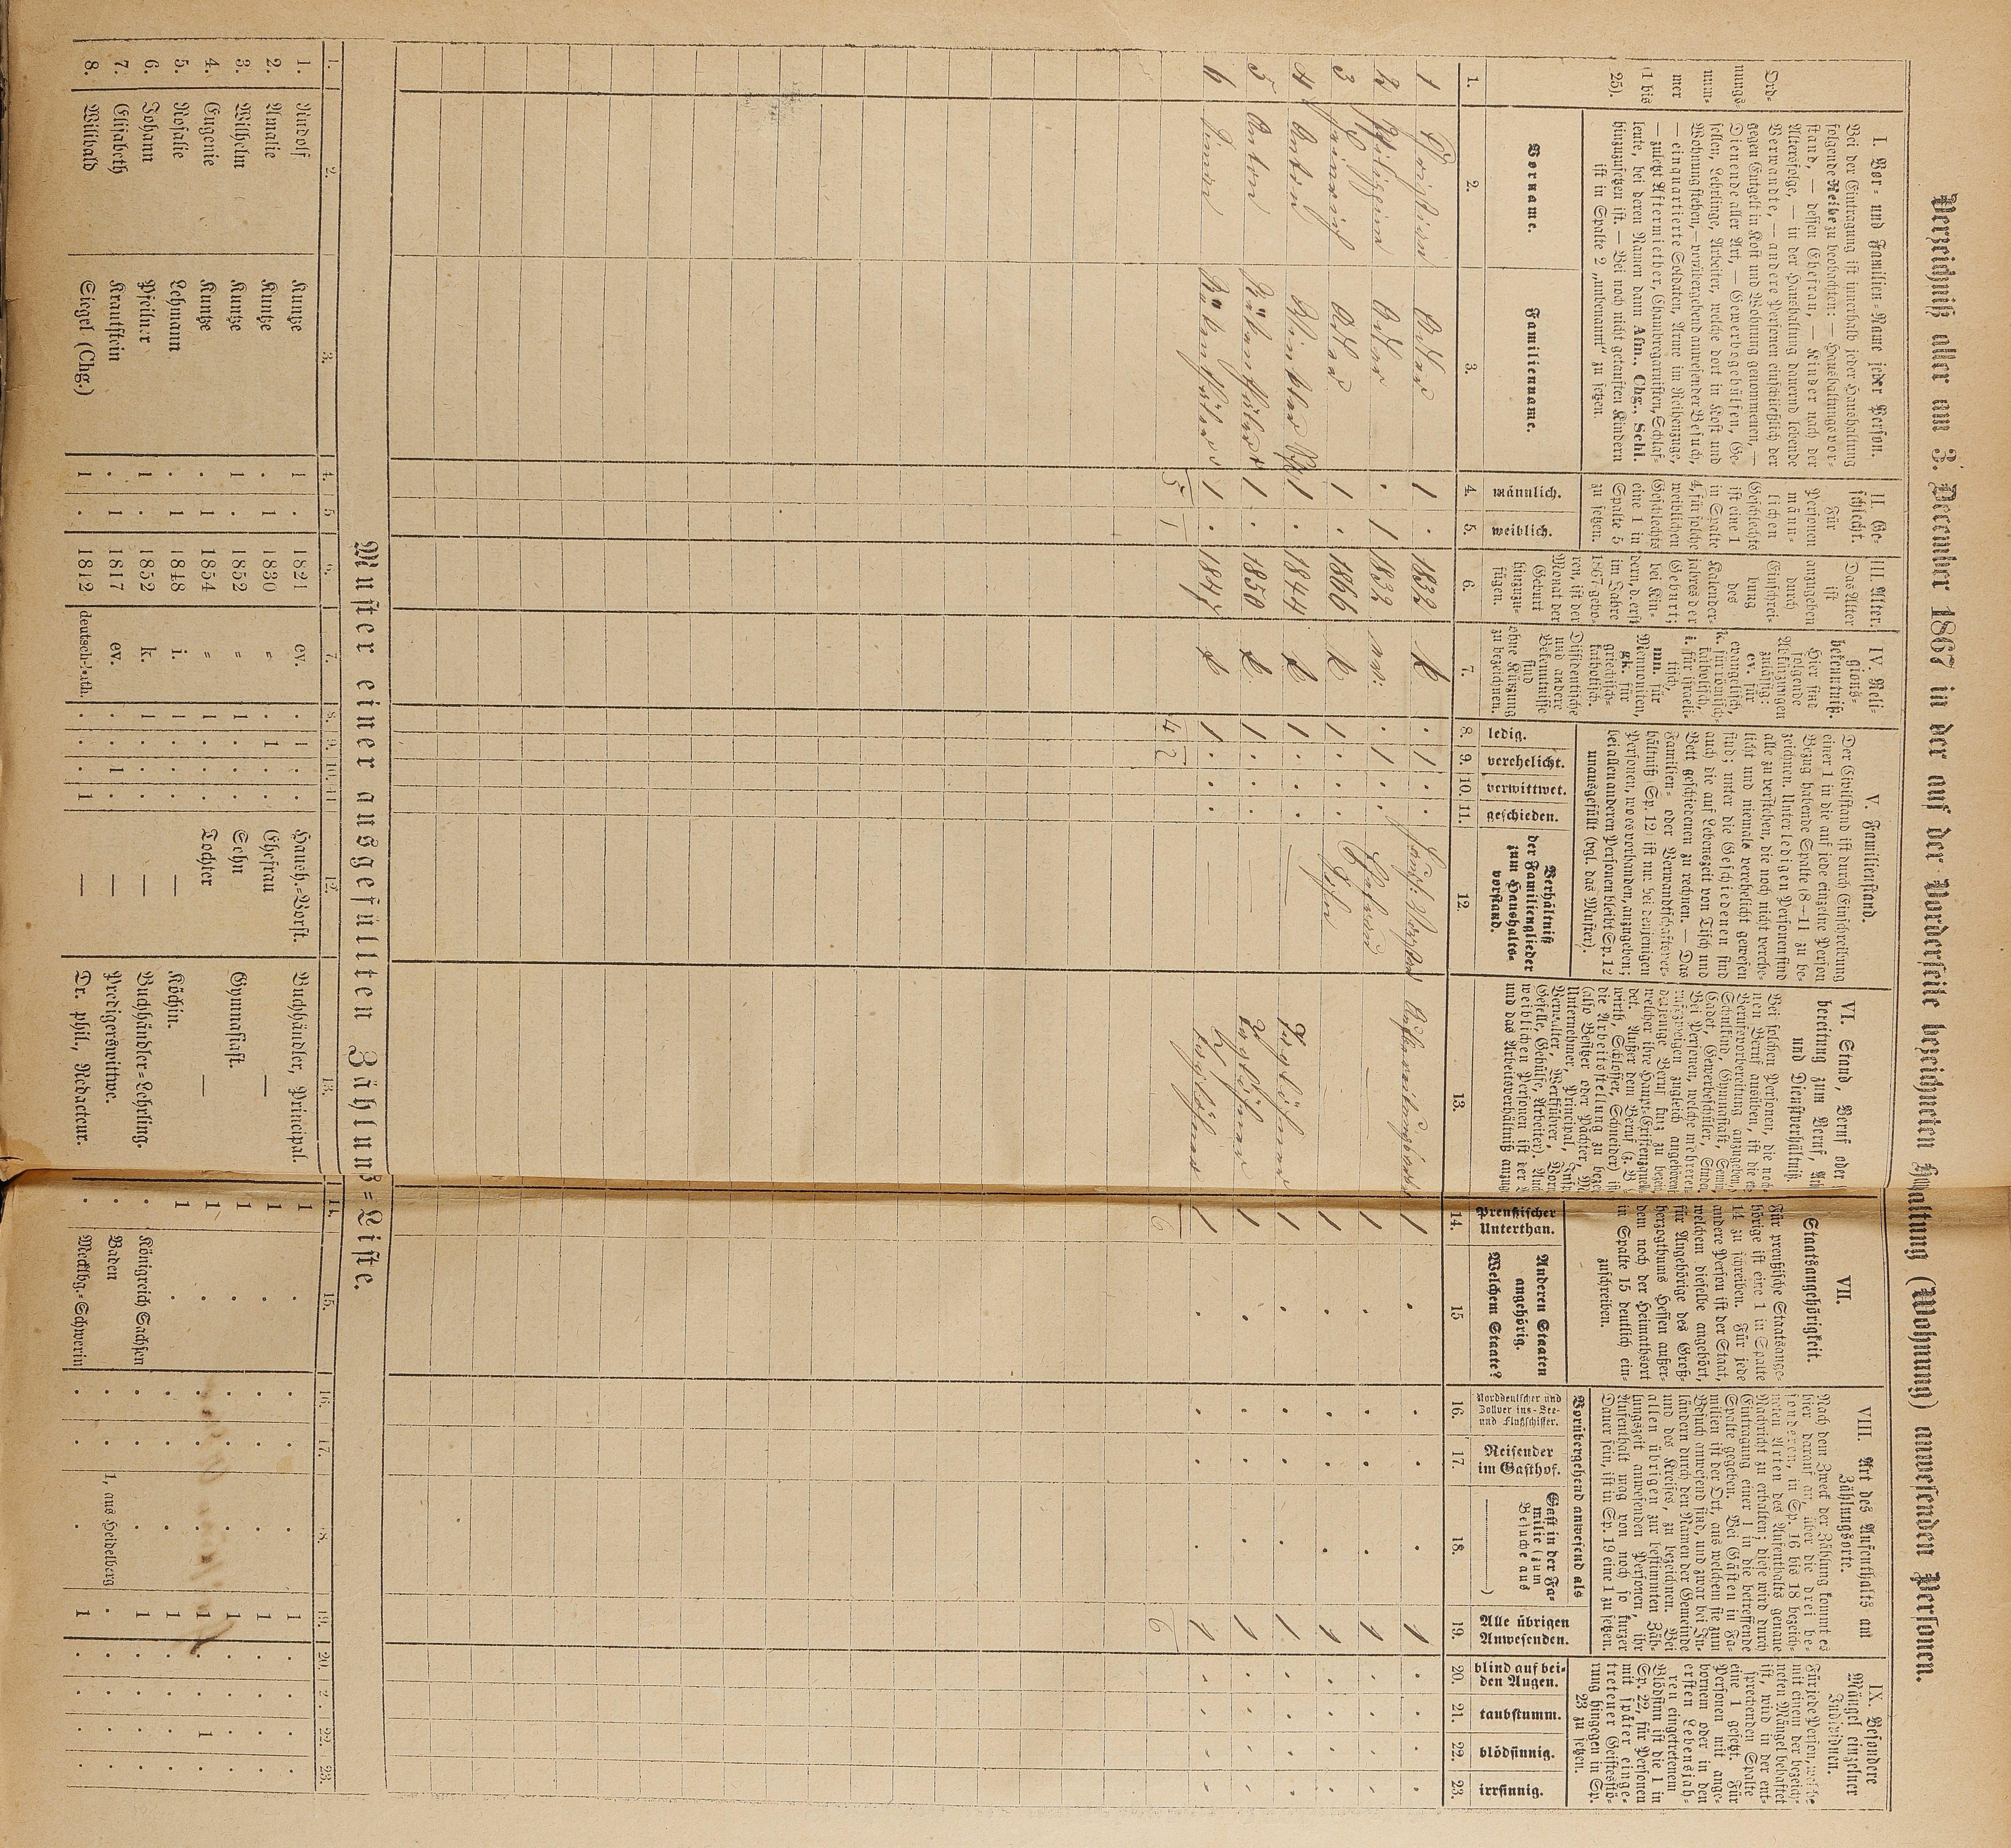 Verzeichniß aller am 3. December 1867 in der auf der Vorderseite bezeichneten Haushaltung (Wohnung) anwesenden Personen.
Ord-
nungs-
num-
mer
(1 bis
25).
I. Vor- und Familien-Name jeder Person.
Bei der Eintragung ist innerhalb jeder Haushaltung
folgende Reihe zu beobachten: — Haushaltungsvor-
stand, — dessen Ehefrau, — Kinder nach der
Altersfolge, — in der Haushaltung dauernd lebende
Verwandte, — andere Personen einschließlich der
gegen Entgelt in Kost und Wohnung genommenen, —
Dienende aller Art, — Gewerbsgehilfen, Ge-
sellen, Lehrlinge, Arbeiter, welche dort in Kost und
Wohnung stehen, — vorübergehend anwesender Besuch,
— einquartierte Soldaten, Arme im Reihenzuge,
— zuletzt Aftermiether, Chambregarnisten, Schlaf-
leute, bei deren Namen dann Afm., Chg., Schl.
hinzuzusetzen ist. — Bei noch nicht getauften Kindern
ist in Spalte 2 „unbenannt“ zu setzen.
II. Ge-
schlecht.
Für
Personen
männ-
lichen
Geschlechts
ist eine 1
in Spalte
4, für solche
weiblichen
Geschlechts
eine 1 in
Spalte 5
zu setzen.
III. Alter.
Das Alter
ist
anzugeben
durch
Einschrei-
bung
des
Kalender-
jahres der
Geburt;
bei Kin-
dern, d. erst
im Jahre
1867 gebo-
ren, ist der
Monat der
Geburt
hinzuzu-
fügen.
IV. Reli-
gions-
bekenntniß.
Hier sind
folgende
Abkürzungen
zulässig:
ev. für
evangelisch,
k. für römisch-
katholisch,
i. für israeli-
tisch,
mn. für
Mennoniten,
gk. für
griechisch-
katholisch.
Dissidentische
und andere
Bekenntnisse
sind
ohne Kürzung
zu bezeichnen.
V. Familienstand.
Der Civilstand ist durch Einschreibung
einer 1 in die auf jede einzelne Person
Bezug habende Spalte (8—11 zu be-
zeichnen. Unter ledigen Personen sind
alle zu verstehen, die noch nicht verehe-
licht und niemals verehelicht gewesen
sind; unter die Geschiedenen sind
auch die auf Lebenszeit von Tisch und
Bett geschiedenen zu rechnen. — Das
Familien- oder Verwandtschaftsver-
hältniß Sp. 12 ist nur bei denjenigen
Personen, wo es vorhanden, anzugeben;
bei allen anderen Personen bleibt Sp. 12
unausgefüllt (vgl. das Muster).
VI. Stand, Beruf oder
bereitung zum Beruf,
und Dienstverhältniß.
Bei solchen Personen, die noch
nen Beruf ausüben, ist die
Berufsvorbereitung anzugeben,
Schulkind, Gymnasiast,
Cadet, Gewerbeschüler,
Bei Personen, welche mehreren
zweigen zugleich angehören
derjenige Beruf kurz zu
welcher ihre Haupt-Existenzquelle
det. Außer dem Beruf (z. B.
wirth, Schlosser, Schneider) ist
die Arbeitsstellung zu
(also Besitzer oder Pächter,
Unternehmer, Principal,
Verwalter, Werkführer,
Geselle, Gehülfe, Arbeiter).
weiblichen Personen ist der
und das Arbeitsverhältniß
VII.
Staatsangehörigkeit.
Für preußische Staatsange-
hörige ist eine 1 in Spalte
14 zu schreiben. Für jede
andere Person ist der Staat,
welchem dieselbe angehört,
für Angehörige des Groß-
herzogthums Hessen außer-
dem noch der Heimathsort
in Spalte 15 deutlich ein-
zuschreiben.
VIII. Art des Aufenthalts am
Zählungsorte.
Nach dem Zweck der Zählung kommt es
hier darauf an, über die drei be-
sonderen, in Sp. 16 bis 18 bezeich-
neten Arten des Aufenthalts genaue
Nachricht zu erhalten; diese wird durch
Eintragung einer 1 in die betreffende
Spalte gegeben. Bei Gästen in Fa-
milien ist der Ort, aus welchem sie zum
Besuch anwesend sind, und zwar bei In-
ländern durch den Namen der Gemeinde
und des Kreises zu bezeichnen. Bei
allen übrigen zur bestimmten Zäh-
lungszeit anwesenden Personen, ihr
Aufenthalt mag von noch so kurzer
Dauer sein, ist in Sp. 19 eine 1 zu setzen.
Vorübergehend anwesend als
IX. Besondere
Mängel einzelner
Individuen.
Für jede Person, welche
mit einem der bezeich-
neten Mängel behaftet
ist, wird in der ent-
sprechenden Spalte
eine 1 gesetzt. Für
Personen mit ange-
bornem oder in den
ersten Lebensjah-
ren eingetretenem
Blödsinn ist die 1 in
Sp. 22, für Personen
mit später einge-
tretener Geistesstö-
rung hingegen in Sp.
23 zu setzen.
Vorname. Familienname. männlich. weiblich. ledig. verehelicht. verwittwet. geschieden.
Verhältniß
der Familienglieder
zum Haushalts-
vorstand.
Preußischer
Unterthan.
Anderen Staaten
angehörig.
Welchem Staate?
Norddeutscher und
Zollvereins-See-
und Flußschiffer.
Reisender
im Gasthof.
Gast in der Fa-
milie (zum
Besuche aus
)
Alle übrigen
Anwesenden.
blind auf bei-
den Augen.
taubstumm.
blödsinnig.
irrsinnig.
1. 2. 3. 4. 5. 6. 7. 8. 9. 10. 11. 12. 13. 14. 15 16. 17. 18. 19. 20. 21. 22. 23.
1 Christian 1 . 1832 k . 1 . . 1 . . . . 1 . . . .
2 . 1 1832 . 1 . . Ehefrau — 1 . . . . 1 . . . .
3 Heinrich 1 . 1866 k 1 . . . Sohn — 1 . . . . 1 . . . .
4 Anton 1 . 1844 k 1 . . . — Tagelöhner 1 . . . . 1 . . . .
5 Anton 1 . 1850 k 1 . . . — Tagelöhner 1 . . . . 1 . . . .
6 1 . 1847 k 1 . . . — Tagelöhner 1 . . . . 1 . . . .
5 1 4 2 6 6
Muster einer ausgefüllten Zählungs-Liste.
1. 2. 3. 4. 5 6. 7. 8. 9. 10. 11 12. 13. 14. 15. 16. 17. 18. 19. 20. 21. 22. 23.
1. Rudolf Kuntze 1 . 1821 ev. . 1 . . Haush.-Vorst. Buchhändler, Principal. 1 . . . . 1 . . . .
2. Amalie Kuntze . 1 1830 „ . 1 . . Ehefrau — 1 . . . . 1 . . . .
3. Wilhelm Kuntze 1 . 1852 „ 1 . . . Sohn Gymnasiast. 1 . . . . 1 . . . .
4. Eugenie Kuntze . 1 1854 „ 1 . . . Tochter — 1 . . . . 1 . . 1 .
5. Rosalie Lehmann . 1 1848 i. 1 . . . — Köchin. 1 . . . . 1 . . . .
6. Johann Pfeilner 1 . 1852 k. 1 . . . — Buchhändler-Lehrling. . Königreich Sachsen . . . 1 . . . .
7. Elisabeth Krautstein . 1 1817 ev. . . 1 . — Predigerswittwe. . Baden . . 1, aus Heidelberg . . . . .
8. Willibald Siegel (Chg.) 1 . 1812 deutsch-kath. . . . 1 — Dr. phil., Redacteur. . Mecklbg.-Schwerin . . . 1 . . . .